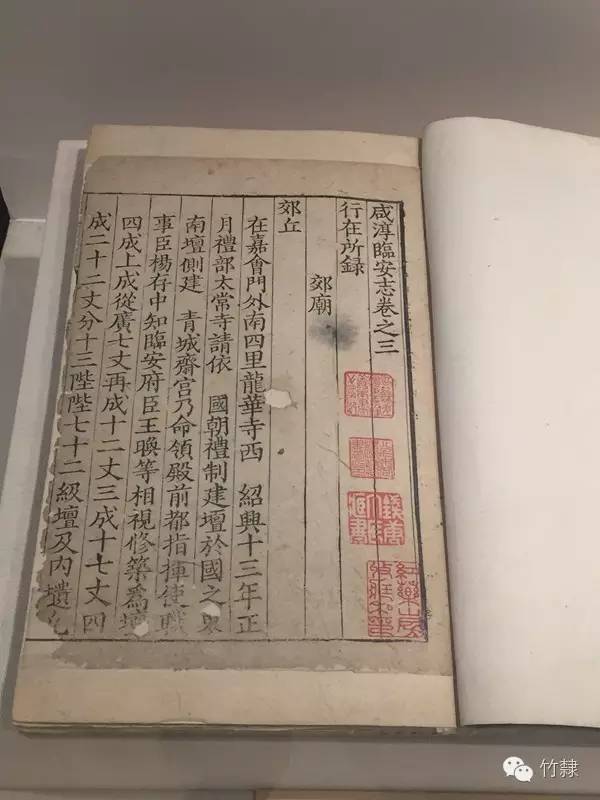 咸淳臨安志卷之三
行在所録
郊廟
郊丘
在嘉會門外南四里龍華寺西 紹興十三年正
月禮部太常寺請依 國朝禮制建壇於國之東
南壇側建 青城齋宮乃命領殿前都指揮使職
事臣楊存中知臨安府臣王㬇等相視修築為壇
四成上成從廣七丈再成十二丈三成十七丈四
成二十二丈分十三陛陛七十二級壇及内壝凡
竹隸